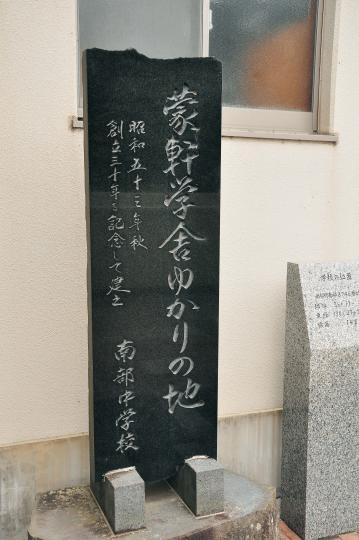 蒙軒学舎ゆかりの地
昭和五十三年秋
創立三十年を記念して建立
南部中学校
学校の位置